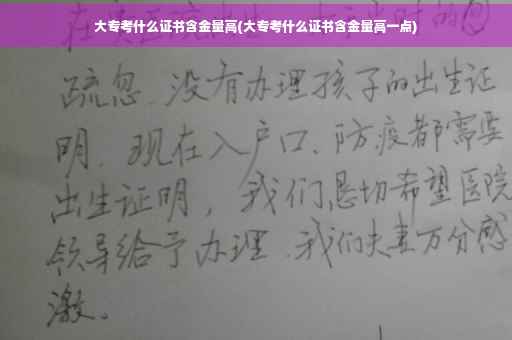 大专考什么证书含金量高(大专考什么证书含金量高一点)
疏忽、没有办理孩子的出生证
明、现在入户口、防疫都需要
出生证明，我们恳切希望医院
领导给予办理、我们夫妻万分感
激。